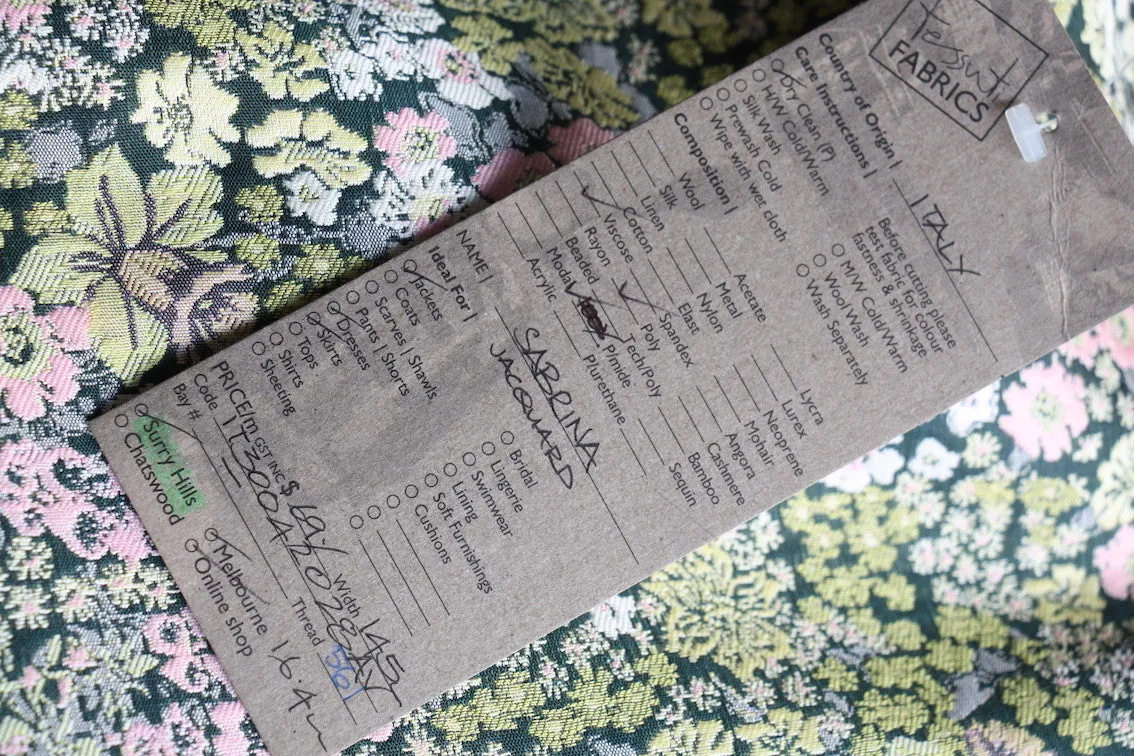 Tessuti
FABRICS
Country of Origin | ITALY
Care Instructions |
Dry Clean (P)
H/W Cold/Warm
Silk Wash
Prewash Cold
Wipe with wet cloth
Before cutting please
test fabric for colour
fastness & shrinkage
M/W Cold/Warm
Wool Wash
Wash Separately
Composition |
Wool
Silk
Linen
Cotton
Viscose
Rayon
Beaded
Modal
Acrylic
Acetate
Metal
Nylon
Elast
Spandex
Poly
Tech/Poly
Pimide
Plurethane
Lycra
Lurex
Neoprene
Mohair
Angora
Cashmere
Bamboo
Sequin
NAME | SABRINA
JACQUARD
Ideal For |
Jackets
Coats
Scarves | Shawls
Pants | Shorts
Dresses
Skirts
Tops
Shirts
Sheeting
Bridal
Lingerie
Swimwear
Lining
Soft Furnishings
Cushions
PRICE/m GST INC $ 69/
Width 145
Code
Thread 561
Bay #
Surry Hills
Chatswood
Melbourne
Online shop